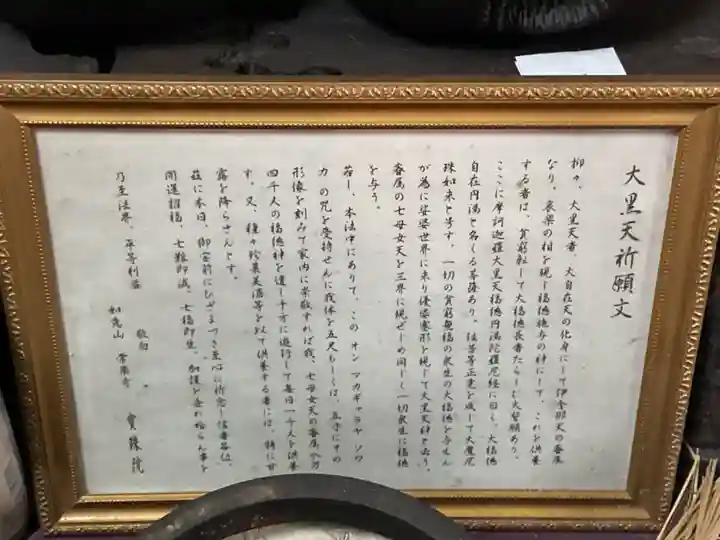 大黒天祈願文
抑々、大黒天者、大自在天の化身にして伊舎那天の眷属
なり、哀楽の相を現し福徳施与の神にして、これを供養
する者は、貧窮転して大福徳長者たらしむ大誓願あり。
ここに摩訶迦羅大黒天福徳円満陀羅尼経に曰く、大福徳
自在円満と名くる菩薩あり。往昔等正覚を成して大魔尼
珠如来と号す。一切の貧窮無福の衆生の大福徳を与せん
が為に娑婆世界に来り優婆塞形を現して大黒天神と云う。
眷属の七母女天を三界に現ぜしめ同しく一切衆生に福徳
を与う。
若し、本法中にありて、この オン マカギャラヤ ソワ
カ の咒を受持せんに我体を五尺もしくは、五寸にその
形像を刻みて家内に崇敬すれば我、七母女天の眷属 八万
四千人の福徳神を遣し十方に遊行して毎日一千人を供養
す。又、種々珍菓美酒等を以て供養する者には、特に甘
露を降らさんとす。
茲に本日、御宝前にひざまづき至心に祈念し信者各位、
開運招福、七難即滅、七福即生、加護を垂れ給らん事を
乃至法界、平等利益
敬白
如意山
寳珠院